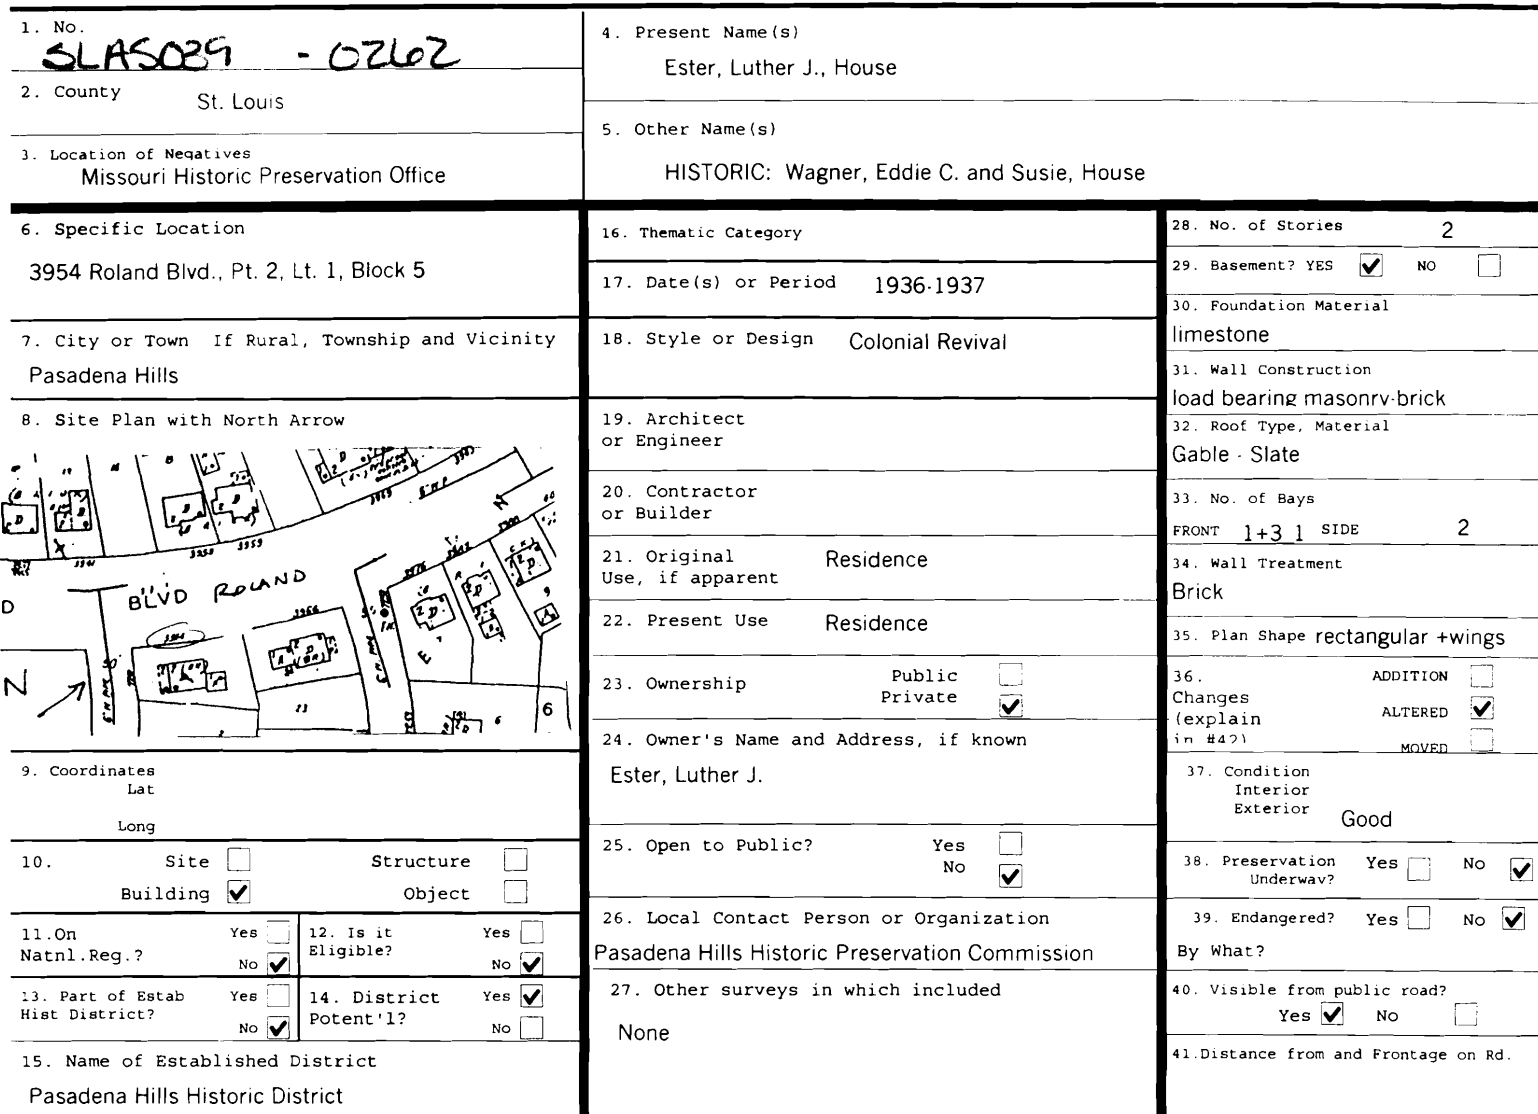 1. No.
SLAS039 - 0262
2. County
St. Louis
3. Location of Negatives
Missouri Historic Preservation Office
4. Present Name(s)
Ester, Luther J., House
5. Other Name(s)
HISTORIC: Wagner, Eddie C. and Susie, House
6. Specific Location
3954 Roland Blvd., Pt. 2, Lt. 1, Block 5
7. City or Town If Rural, Township and Vicinity
Pasadena Hills
8. Site Plan with North Arrow
BLVD ROLAND
3959
3966
N
E
13
6
6
9. Coordinates
Lat
Long
10. Site Structure
Building ✔ Object
11.On
Natnl.Reg.?
Yes
No ✔
12. Is it
Eligible?
Yes
No ✔
13. Part of Estab
Hist District?
Yes
No ✔
14. District
Potent'l?
Yes ✔
No
15. Name of Established District
Pasadena Hills Historic District
16. Thematic Category
17. Date(s) or Period 1936-1937
18. Style or Design Colonial Revival
19. Architect
or Engineer
20. Contractor
or Builder
21. Original
Use, if apparent
Residence
22. Present Use Residence
23. Ownership
Public
Private ✔
24. Owner's Name and Address, if known
Ester, Luther J.
25. Open to Public? Yes
No ✔
26. Local Contact Person or Organization
Pasadena Hills Historic Preservation Commission
27. Other surveys in which included
None
28. No. of Stories 2
29. Basement? YES ✔ NO
30. Foundation Material
limestone
31. Wall Construction
load bearing masonry-brick
32. Roof Type, Material
Gable - Slate
33. No. of Bays
FRONT 1+3 1 SIDE 2
34. Wall Treatment
Brick
35. Plan Shape rectangular +wings
36.
Changes
(explain
in #42)
ADDITION
ALTERED ✔
MOVED
37. Condition
Interior
Exterior
Good
38. Preservation
Underway?
Yes No ✔
39. Endangered? Yes No ✔
By What?
40. Visible from public road?
Yes ✔ No
41.Distance from and Frontage on Rd.